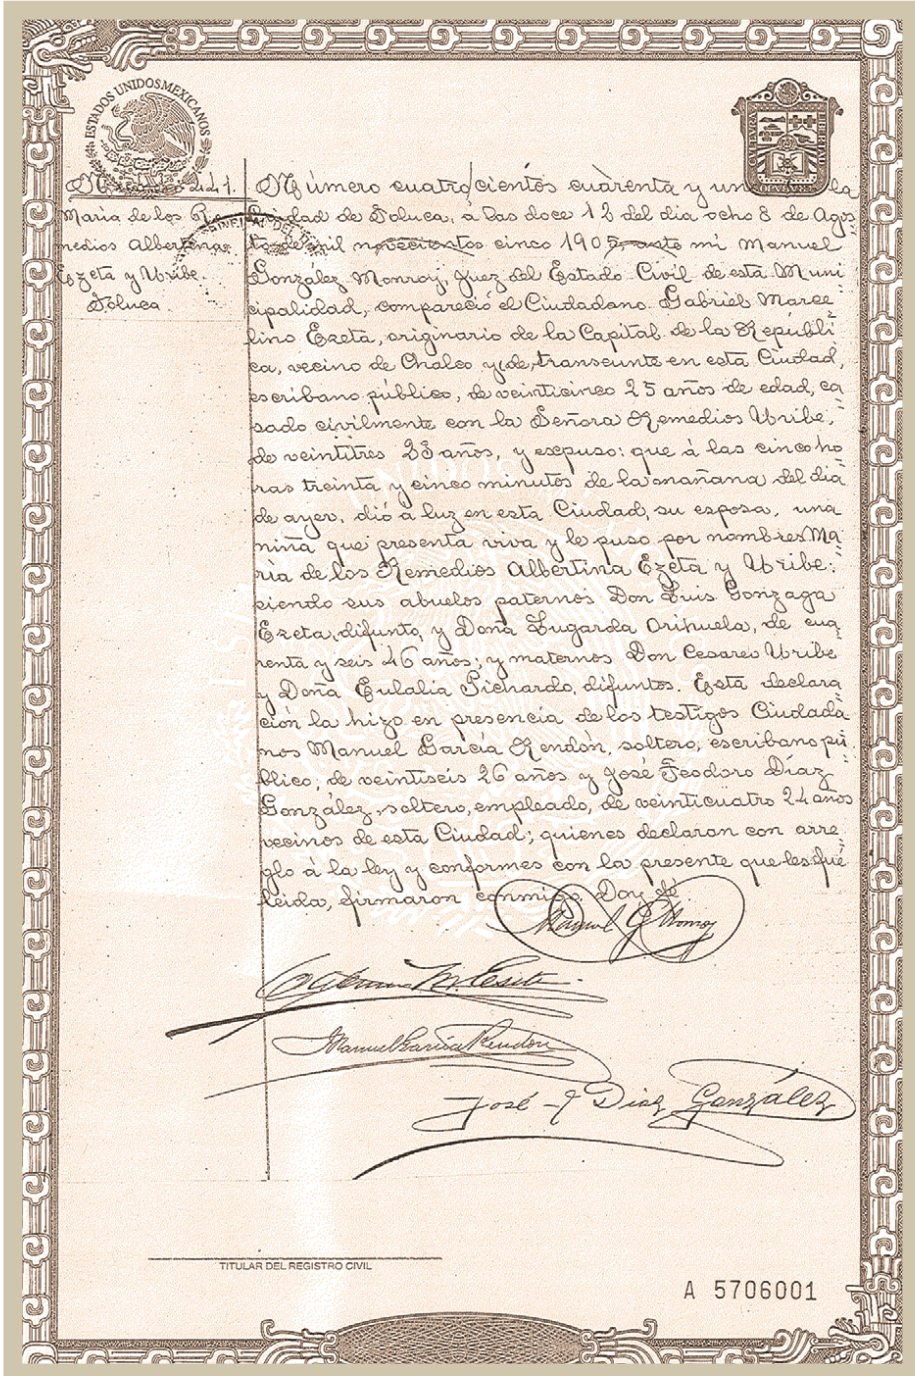 ESTADOS UNIDOS MEXICANOS
Número 441.
María de los Re
medios Albertina
Ezeta y Uribe.
Toluca.
Número cuatrocientos cuarenta y uno la
Ciudad de Toluca, á las doce 12 del dia ocho 8 de Agos
to de mil novecientos cinco 1905 ante mi Manuel
González Monroy, Juez del Estado Civil de esta Muni
cipalidad, compareció el Ciudadano Gabriel Marce
lino Ezeta, originario de la Capital de la Repúbli
ca, vecino de Chalco y de transeunte en esta Ciudad,
escribano público, de veinticinco 25 años de edad, ca
sado civilmente con la Señora Remedios Uribe,
de veintitres 23 años, y expuso: que á las cinco ho
ras treinta y cinco minutos de la mañana del dia
de ayer, dió á luz en esta Ciudad, su esposa, una
niña que presenta viva y le puso por nombres Ma
ría de los Remedios Albertina Ezeta y Uribe;
siendo sus abuelos paternos Don Luis Gonzaga
Ezeta, difunto, y Doña Lugarda Orihuela, de cua
renta y seis 46 años; y maternos Don Cesareo Uribe
y Doña Eulalia Pichardo, difuntos. Esta declara
ción la hizo en presencia de los testigos Ciudada
nos Manuel García Rendón, soltero, escribano pú
blico, de veintiseis 26 años y José Teodoro Díaz
González, soltero, empleado, de veinticuatro 24 años
vecinos de esta Ciudad; quienes declaran con arre
glo á la ley y conformes con la presente que les fué
leida, firmaron conmigo. Doy fé.
Manuel G Monroy
Manuel García Rendón
José T Diaz González
TITULAR DEL REGISTRO CIVIL
A 5706001